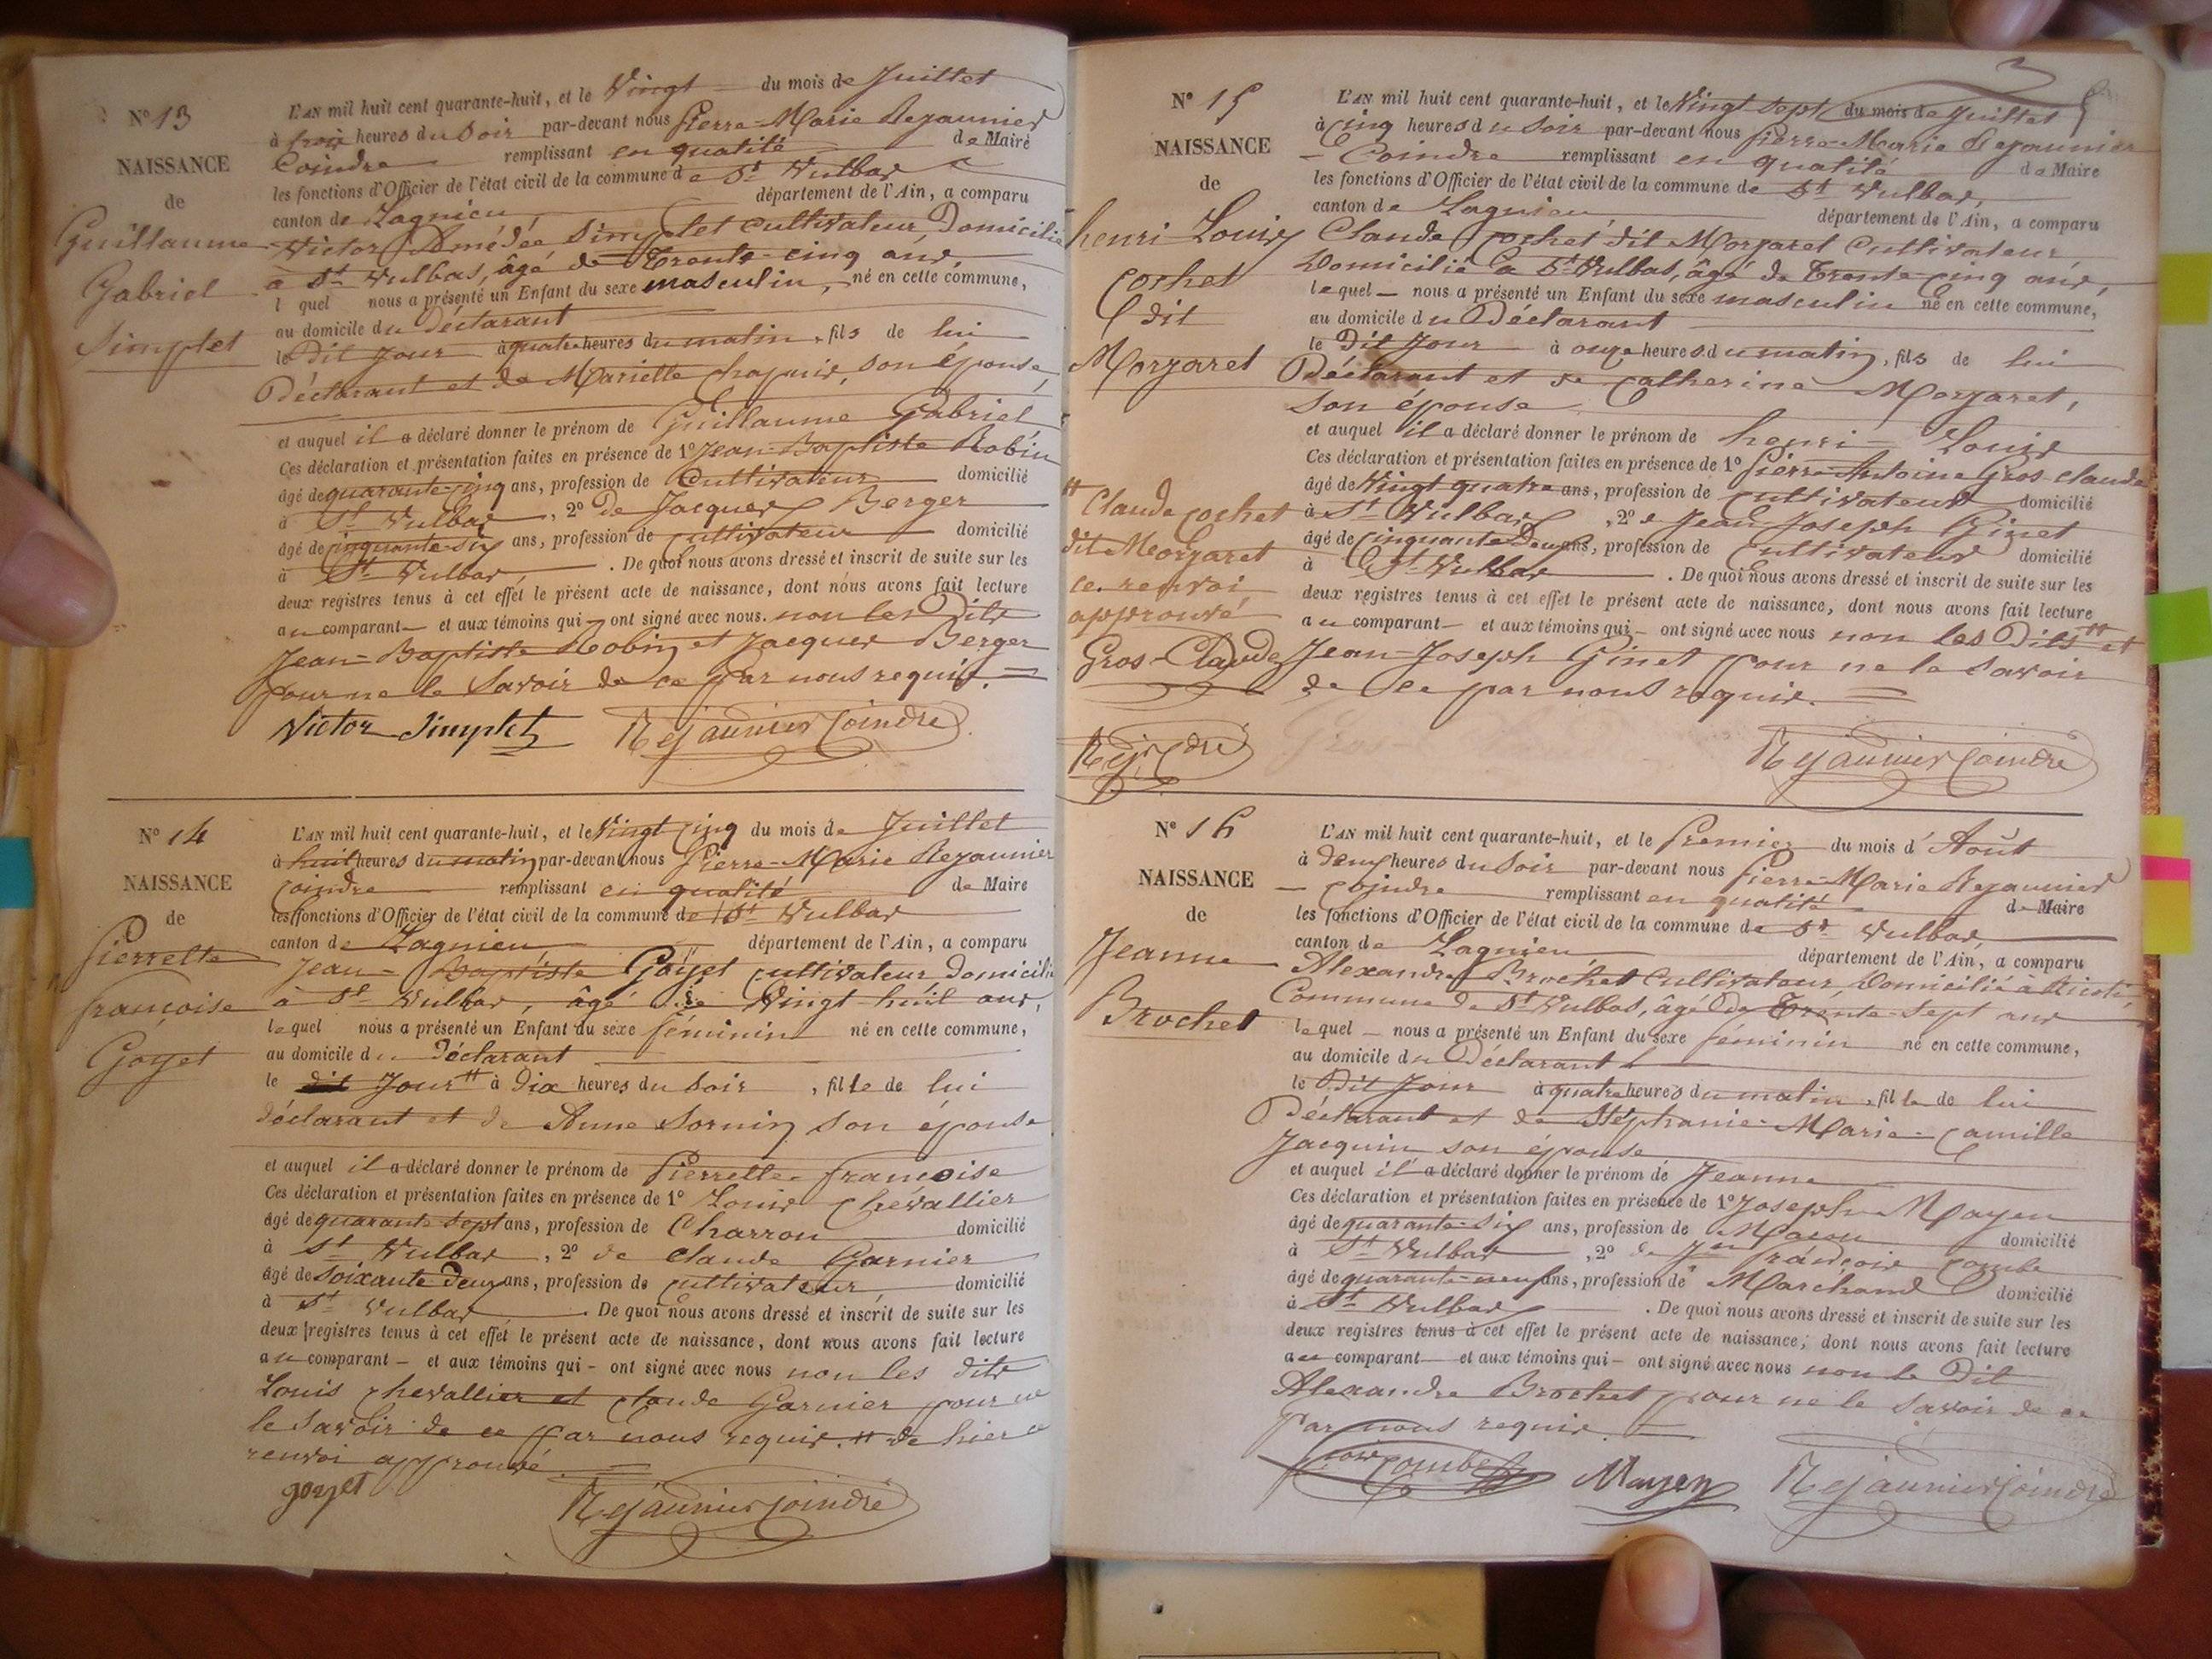 N° 13
NAISSANCE
de
Guillaume
Gabriel
Simplet
L'AN mil huit cent quarante-huit, et le Vingt du mois de Juillet
à trois heures du Soir par-devant nous Pierre-Marie Rejaunier
Coindre remplissant en qualité de Maire
les fonctions d'Officier de l'état civil de la commune de St Vulbas
canton de Lagnieu département de l'Ain, a comparu
Victor Amédée Simplet cultivateur, Domicilié
à St Vulbas, âgé de Trente-cinq ans,
l quel nous a présenté un Enfant du sexe masculin, né en cette commune,
au domicile du Déclarant
le Dit Jour à quatre heures du matin, fils de lui
Déclarant et de Mariette Chapuis, son épouse,
et auquel il a déclaré donner le prénom de Guillaume Gabriel
Ces déclaration et présentation faites en présence de 1° Jean-Baptiste Robin
âgé de quarante-cinq ans, profession de Cultivateur domicilié
à St Vulbas, 2° De Jacques Berger
âgé de cinquante-six ans, profession de cultivateur domicilié
à St Vulbas, . De quoi nous avons dressé et inscrit de suite sur les
deux registres tenus à cet effet le présent acte de naissance, dont nous avons fait lecture
au comparant et aux témoins qui ont signé avec nous. non les Dits
Jean-Baptiste Robin et Jacques Berger
pour ne le Savoir de ce par nous requis. =
Victor Simplet Rejaunier Coindre
N° 14
NAISSANCE
de
Pierrette
françoise
Goyet
L'AN mil huit cent quarante-huit, et le Vingt cinq du mois de Juillet
à huit heures du matin par-devant nous Pierre-Marie Rejaunier
Coindre remplissant en qualité de Maire
les fonctions d'Officier de l'état civil de la commune de St Vulbas
canton de Lagnieu, département de l'Ain, a comparu
Jean-Baptiste Goyet cultivateur domicilié
à St Vulbas, âgé de Vingt-huit ans,
lequel nous a présenté un Enfant du sexe féminin né en cette commune,
au domicile du déclarant
le dit Jour # à Dix heures du Soir, fille de lui
déclarant et de Anne Sornin son épouse
et auquel il a déclaré donner le prénom de Pierrette-françoise
Ces déclaration et présentation faites en présence de 1° Louis Chevallier
âgé de quarante Sept ans, profession de Charron domicilié
à St Vulbas, 2° de Claude Garnier
âgé de Soixante deux ans, profession de cultivateur, domicilié
à St Vulbas . De quoi nous avons dressé et inscrit de suite sur les
deux registres tenus à cet effet le présent acte de naissance, dont nous avons fait lecture
au comparant - et aux témoins qui - ont signé avec nous non les dits
Louis Chevallier et Claude Garnier pour ne
le Savoir de ce par nous requis. # de hier ce
renvoi approuvé =
goyet Rejaunier Coindre
N° 15
NAISSANCE
de
henri Louis
Cochet
dit
Morgaret
L'AN mil huit cent quarante-huit, et le Vingt Sept du mois de Juillet
à cinq heures du Soir par-devant nous Pierre-Marie Rejaunier
- Coindre remplissant en qualité de Maire
les fonctions d'Officier de l'état civil de la commune de St Vulbas,
canton de Lagnieu, département de l'Ain, a comparu
Claude Cochet dit Morgaret Cultivateur
Domicilié à St Vulbas, âgé de Trente cinq ans,
lequel - nous a présenté un Enfant du sexe masculin né en cette commune,
au domicile du Déclarant
le Dit Jour à onze heures du matin, fils de lui
Déclarant et de Catherine Morgaret,
son épouse
et auquel il a déclaré donner le prénom de henri-Louis
Ces déclaration et présentation faites en présence de 1° Pierre-Antoine Gros-Claude
âgé de Vingt quatre ans, profession de cultivateur domicilié
à St Vulbas, 2° de Jean-Joseph Ginet
âgé de cinquante deux ans, profession de cultivateur domicilié
à St Vulbas . De quoi nous avons dressé et inscrit de suite sur les
deux registres tenus à cet effet le présent acte de naissance, dont nous avons fait lecture
au comparant - et aux témoins qui - ont signé avec nous non les Dits # et
Jean-Joseph Ginet pour ne le savoir
de ce par nous requis. =
# Claude Cochet
dit Morgaret
ce renvoi
approuvé
Gros-Claude
Rej. Cdre
Rejaunier Coindre
N° 16
NAISSANCE
de
Jeanne
Brochet
L'AN mil huit cent quarante-huit, et le Premier du mois d'Août
à deux heures du Soir par-devant nous Pierre-Marie Rejaunier
- Coindre remplissant en qualité de Maire
les fonctions d'Officier de l'état civil de la commune de St Vulbas,
canton de Lagnieu, département de l'Ain, a comparu
Alexandre Brochet Cultivateur, Domicilié à
Commune de St Vulbas, âgé De Trente-Sept ans
lequel - nous a présenté un Enfant du sexe féminin né en cette commune,
au domicile du Déclarant
le Dit Jour à quatre heures du matin, fille de lui
Déclarant et de Stéphanie-Marie-Camille
Jacquin son épouse
et auquel il a déclaré donner le prénom de Jeanne
Ces déclaration et présentation faites en présence de 1° Joseph Mayen
âgé de quarante-six ans, profession de Maçon domicilié
à St Vulbas, 2° de Jn françois Combe
âgé de quarante-neuf ans, profession de Marchand domicilié
à St Vulbas . De quoi nous avons dressé et inscrit de suite sur les
deux registres tenus à cet effet le présent acte de naissance, dont nous avons fait lecture
au comparant et aux témoins qui - ont signé avec nous non le Dit
Alexandre Brochet pour ne le Savoir de ce
par nous requis. -
Combe Mayen Rejaunier Coindre